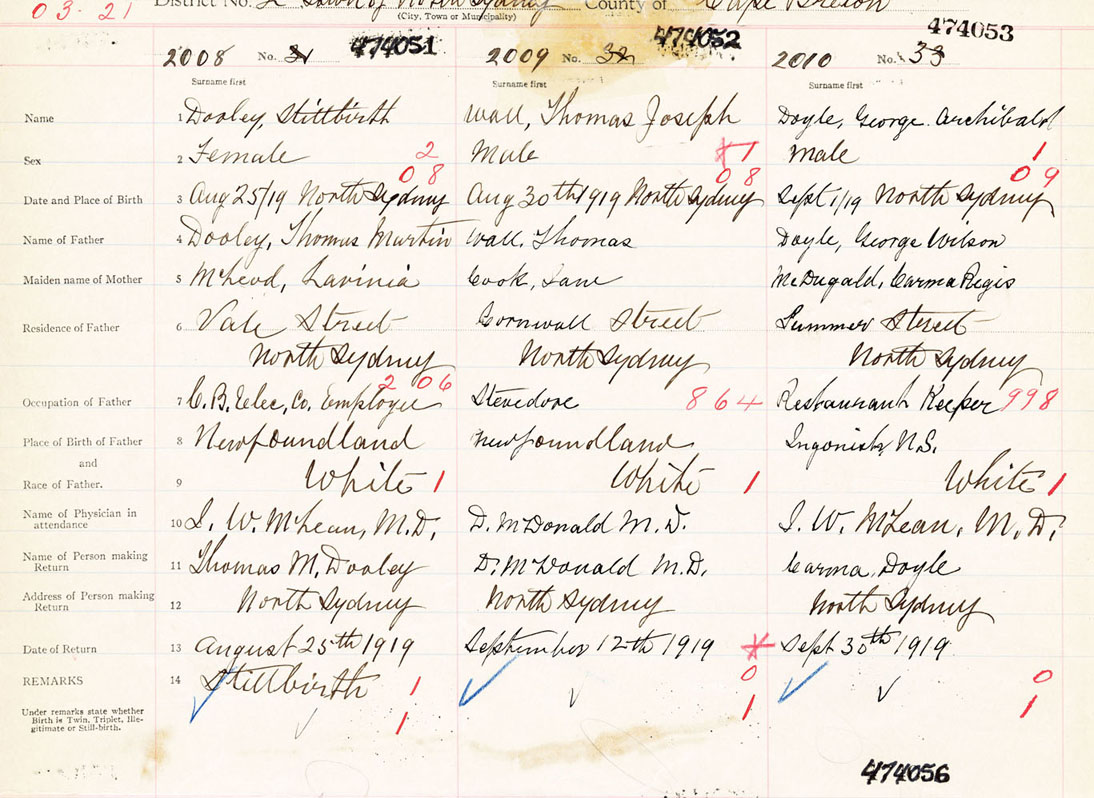 03.21 District No. 2 Town of North Sydney County of Cape Breton
(City, Town or Municipality)
2008 No. 474051 2009 No. 32 474052 2010 No. 33 474053
Surname first Surname first Surname first
Name 1 Dooley, Stillbirth Wall, Thomas Joseph Doyle, George Archibald
Sex 2 Female 2 Male 1 Male 1
08 08 09
Date and Place of Birth 3 Aug 25/19 North Sydney Aug 30th 1919 North Sydney Sept 1/19 North Sydney
Name of Father 4 Dooley, Thomas Martin Wall, Thomas Doyle, George Wilson
Maiden name of Mother 5 McLeod, Lavinia Cook, Jane McDugald, Carma Regis
Residence of Father 6 Vale Street Cornwall Street Summer Street
North Sydney North Sydney North Sydney
206
Occupation of Father 7 C.B. Elec, Co. Employee Stevedore 864 Restaurant Keeper 998
Place of Birth of Father 8 Newfoundland Newfoundland Ingonish N.S.
and
Race of Father. 9 White 1 White 1 White 1
Name of Physician in attendance 10 I. W. McLean, M.D. D. McDonald M.D. I. W. McLean, M.D.
Name of Person making Return 11 Thomas M. Dooley D. McDonald M.D. Carma Doyle
Address of Person making Return 12 North Sydney North Sydney North Sydney
Date of Return 13 August 25th 1919 September 12th 1919 Sept 30th 1919
REMARKS 14 Stillbirth 1 0 0
Under remarks state whether Birth is Twin, Triplet, Ille-gitimate or Still-birth. 1 1 1
474056